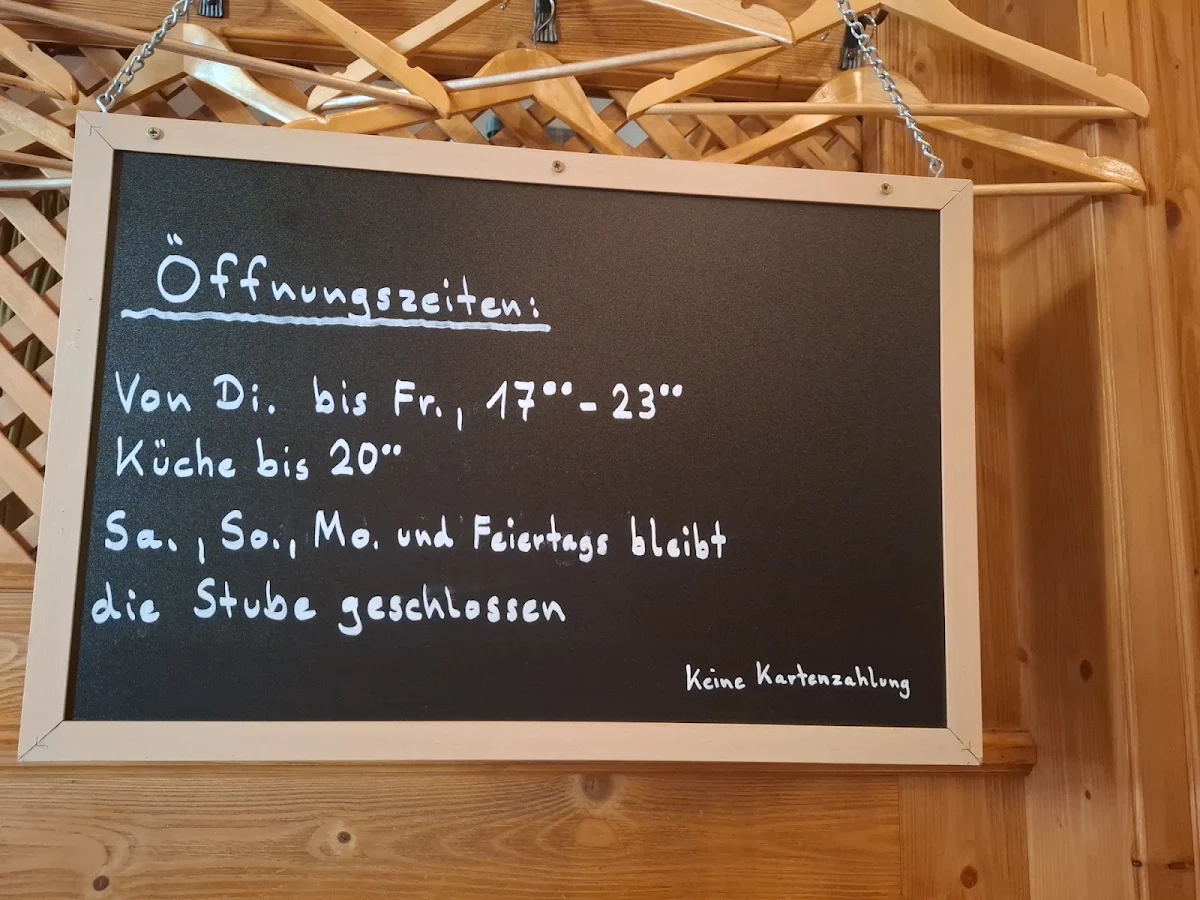 Öffnungszeiten:
Von Di. bis Fr., 17⁰⁰ - 23⁰⁰
Küche bis 20⁰⁰
Sa., So., Mo. und Feiertags bleibt
die Stube geschlossen
Keine Kartenzahlung